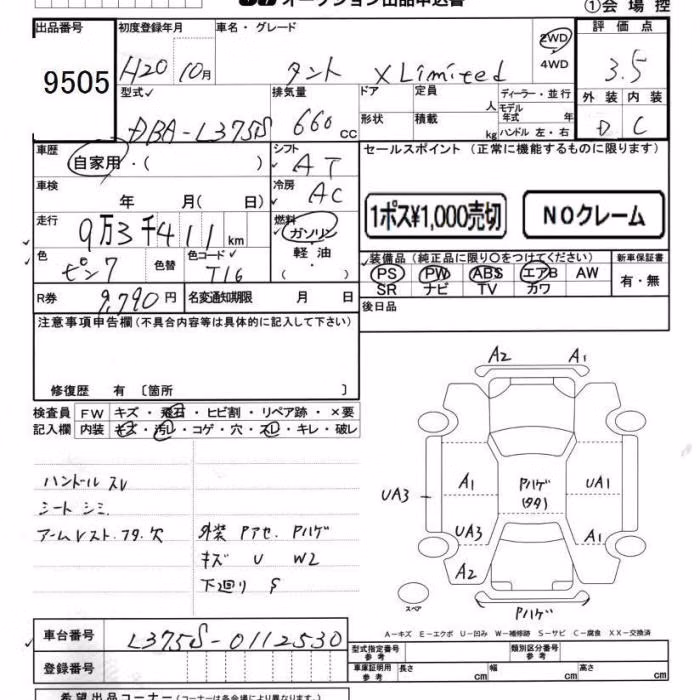 オークション出品申込書
①会場控
出品番号 初度登録年月 車名・グレード 評価点
9505 H20 10月 タント X Limited 2WD 4WD 3.5
型式 排気量 ドア 定員 ディーラー・並行 外装 内装
DBA-L375S 660cc 人 モデル年式 年 D C
形状 積載 kg ハンドル 左・右
車歴 シフト セールスポイント(正常に機能するものに限ります)
自家用・( ) AT
車検 冷房
年 月( 日) AC 1ポス¥1,000売切 NOクレーム
走行 燃料
9万3千411km ガソリン
軽油
色 色替 色コード 装備品(純正品に限り○をつけてください) 新車保証書
ピンク T16 PS PW ABS エアB AW 有・無
SR ナビ TV カワ
R券 9,790円 名変通知期限 月 日 後日品
注意事項申告欄(不具合内容等は具体的に記入して下さい)
修復歴 有 〔箇所 〕
検査員 FW キズ・飛石・ヒビ割・リペア跡・×要
記入欄 内装 キズ・汚レ・コゲ・穴・スレ・キレ・破レ
ハンドル スレ
シート シミ
アームレスト.フタ.欠
外装 Pアセ. Pハゲ
キズ U W2
下廻り S
A2 A1
A1 Pハゲ UA1
UA3 (タタ)
UA3 A1
A2
スペア Pハゲ
A-キズ E-エクボ U-凹み W-補修跡 S-サビ C-腐食 XX-交換済
車台番号 L375S-0112530
型式指定番号 参考 類別区分番号 参考
登録番号 車庫証明用 参考 長さ cm 幅 cm 高さ cm
希望出品コーナー(コーナーは各会場により異なります)